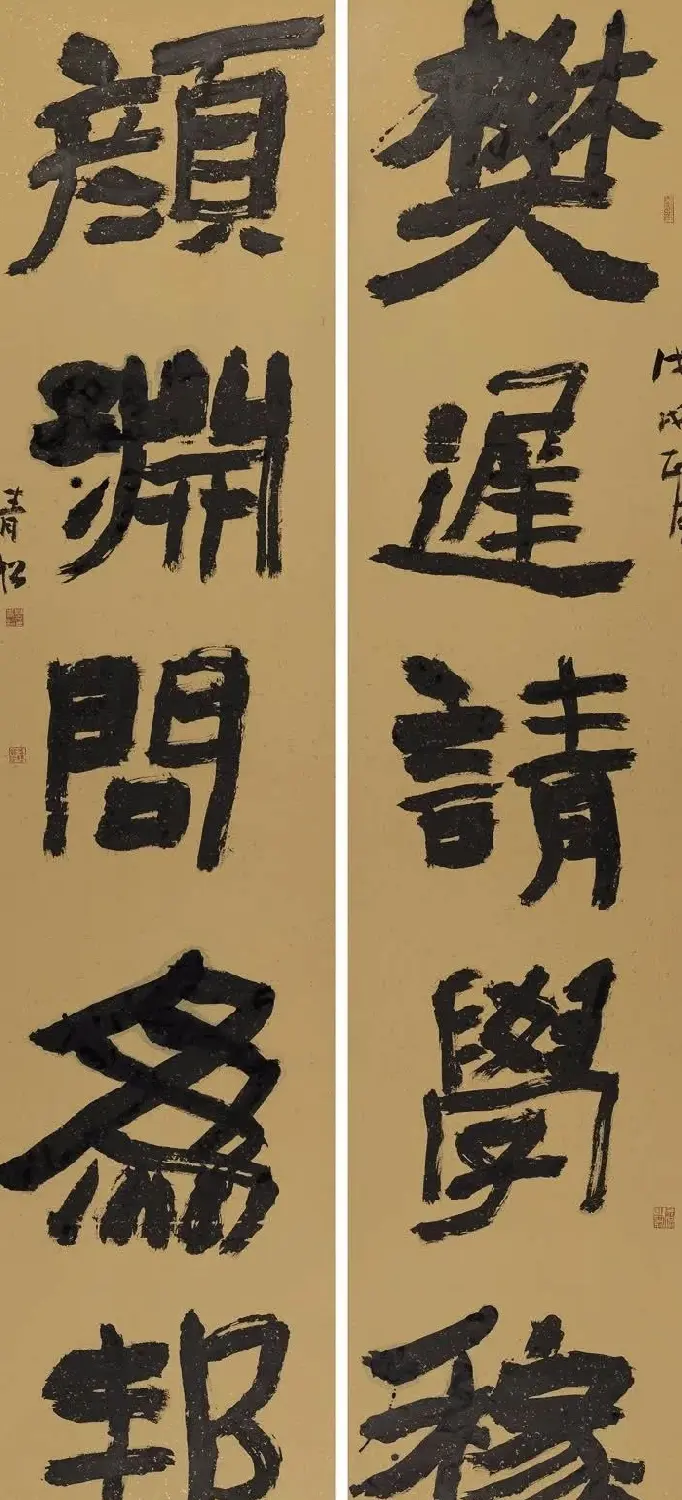 戊戌正月
樊遲請學稼
顏淵問為邦
青松